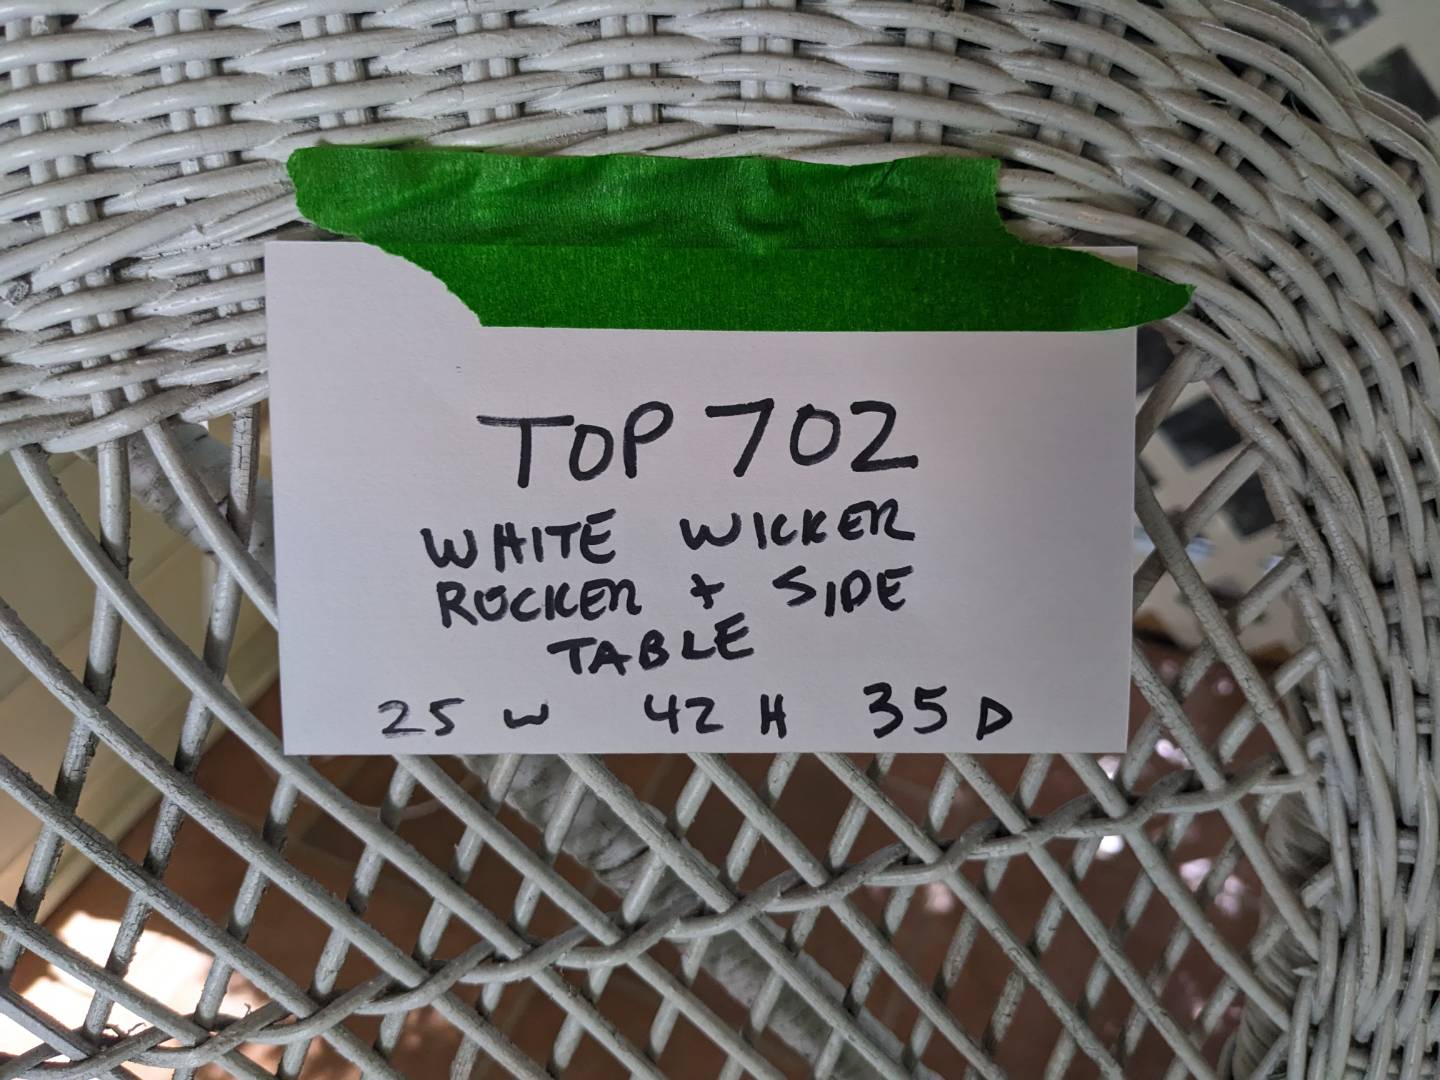 TOP 702
WHITE WICKER
ROCKER + SIDE
TABLE
25 W 42 H 35 D